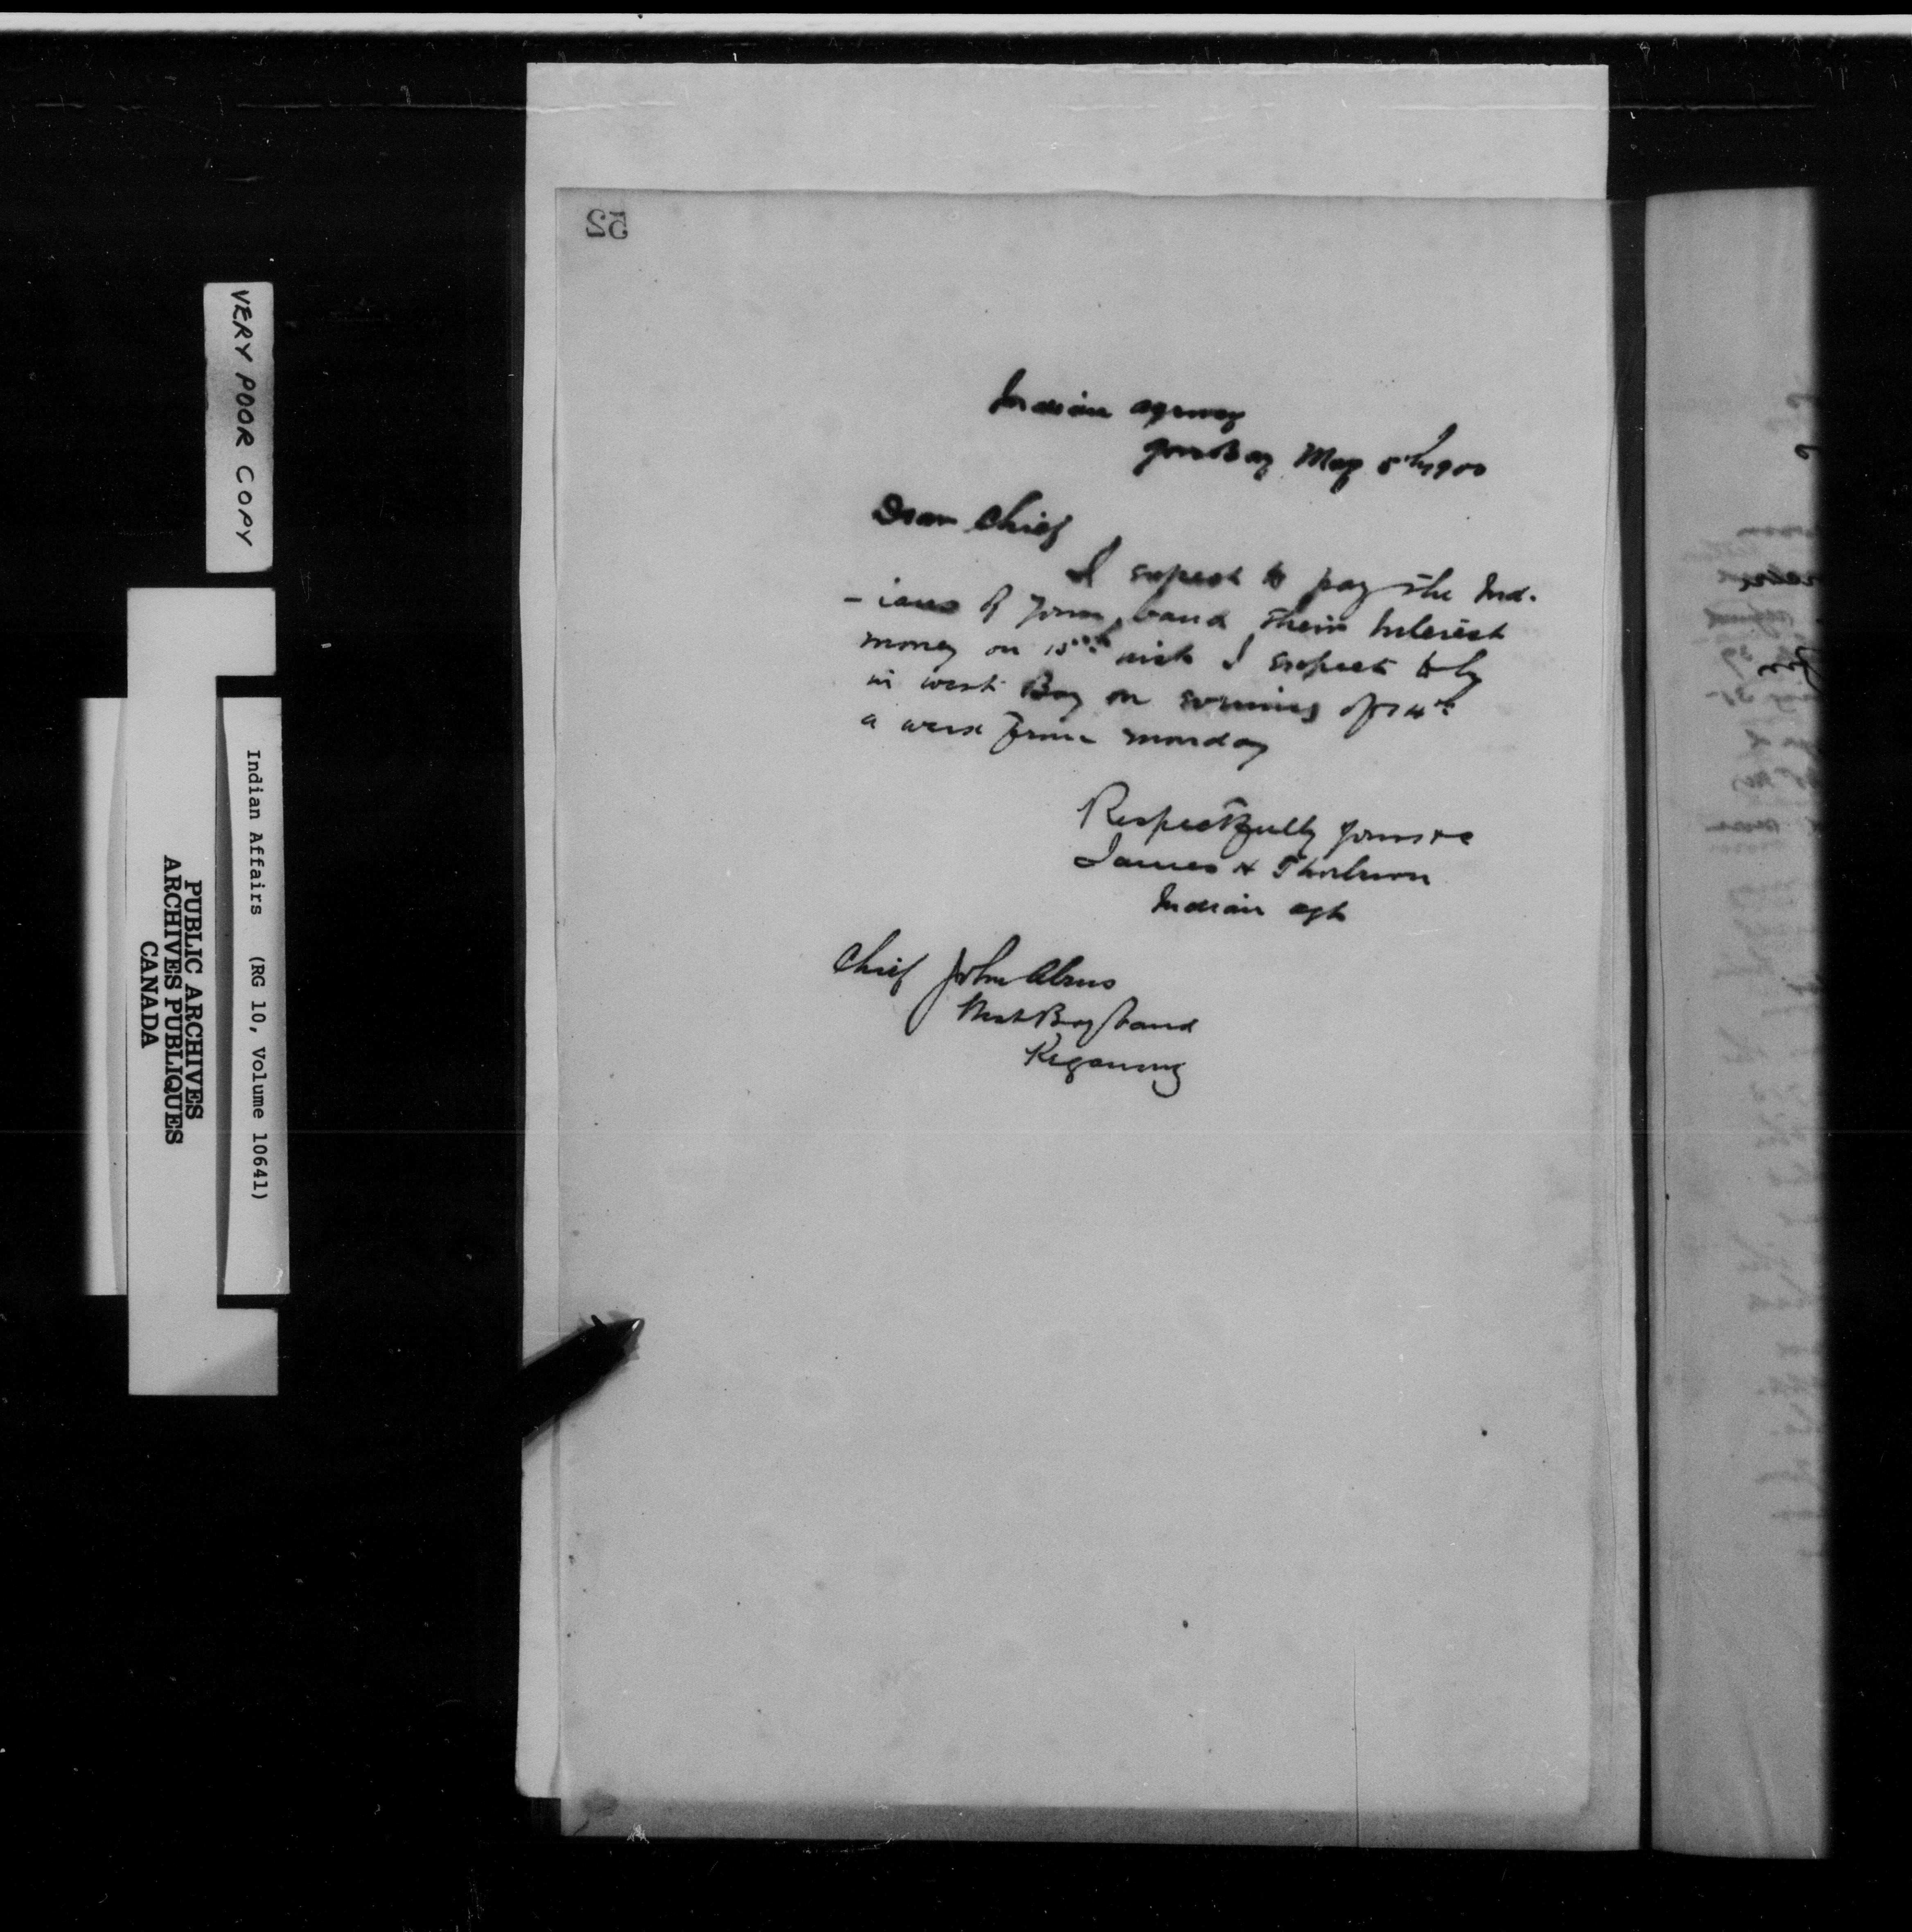 52
Indian agency
Gore Bay May 5th 1900
Dear Chief
I expect to pay the Ind-
-ians of your band their Interest
money on 15th inst I expect to be
in west Bay on evening of 14th
a week from monday
Respectfully yours &c
James H Thorburn
Indian agt
Chief John
West Bay band
VERY POOR COPY
Indian Affairs (RG 10, Volume 10641)
PUBLIC ARCHIVES
ARCHIVES PUBLIQUES
CANADA